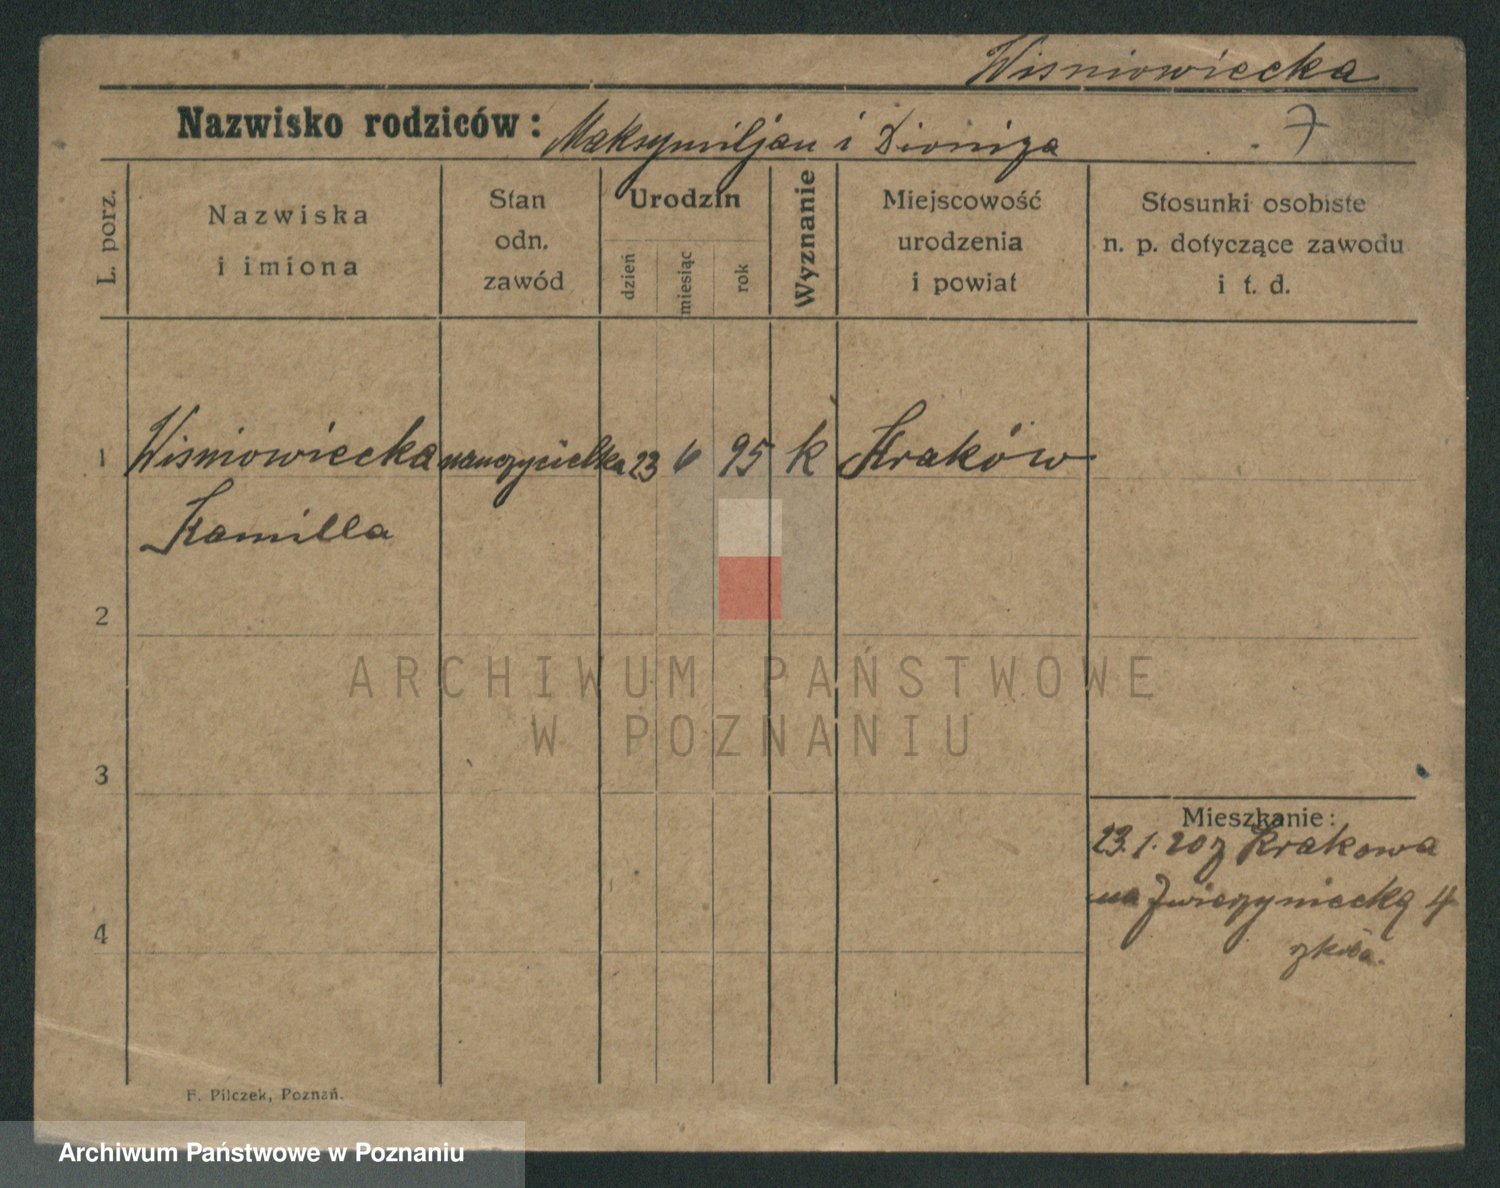 Wisniowiecka
Nazwisko rodziców: Maksymiljan i Dioniza
7
L. porz.
Nazwiska
i imiona
Stan
odn.
zawód
Urodzin
dzień
miesiąc
rok
Wyznanie
Miejscowość
urodzenia
i powiat
Stosunki osobiste
n. p. dotyczące zawodu
i t. d.
1 Wisniowiecka nauczycielka 23 6 95 k Kraków
Kamilla
2
ARCHIWUM PAŃSTWOWE
W POZNANIU
3
Mieszkanie:
23.1.20 z Krakowa
na Zwierzyniecką 4
szkoła.
4
F. Pilczek, Poznań.
Archiwum Państwowe w Poznaniu